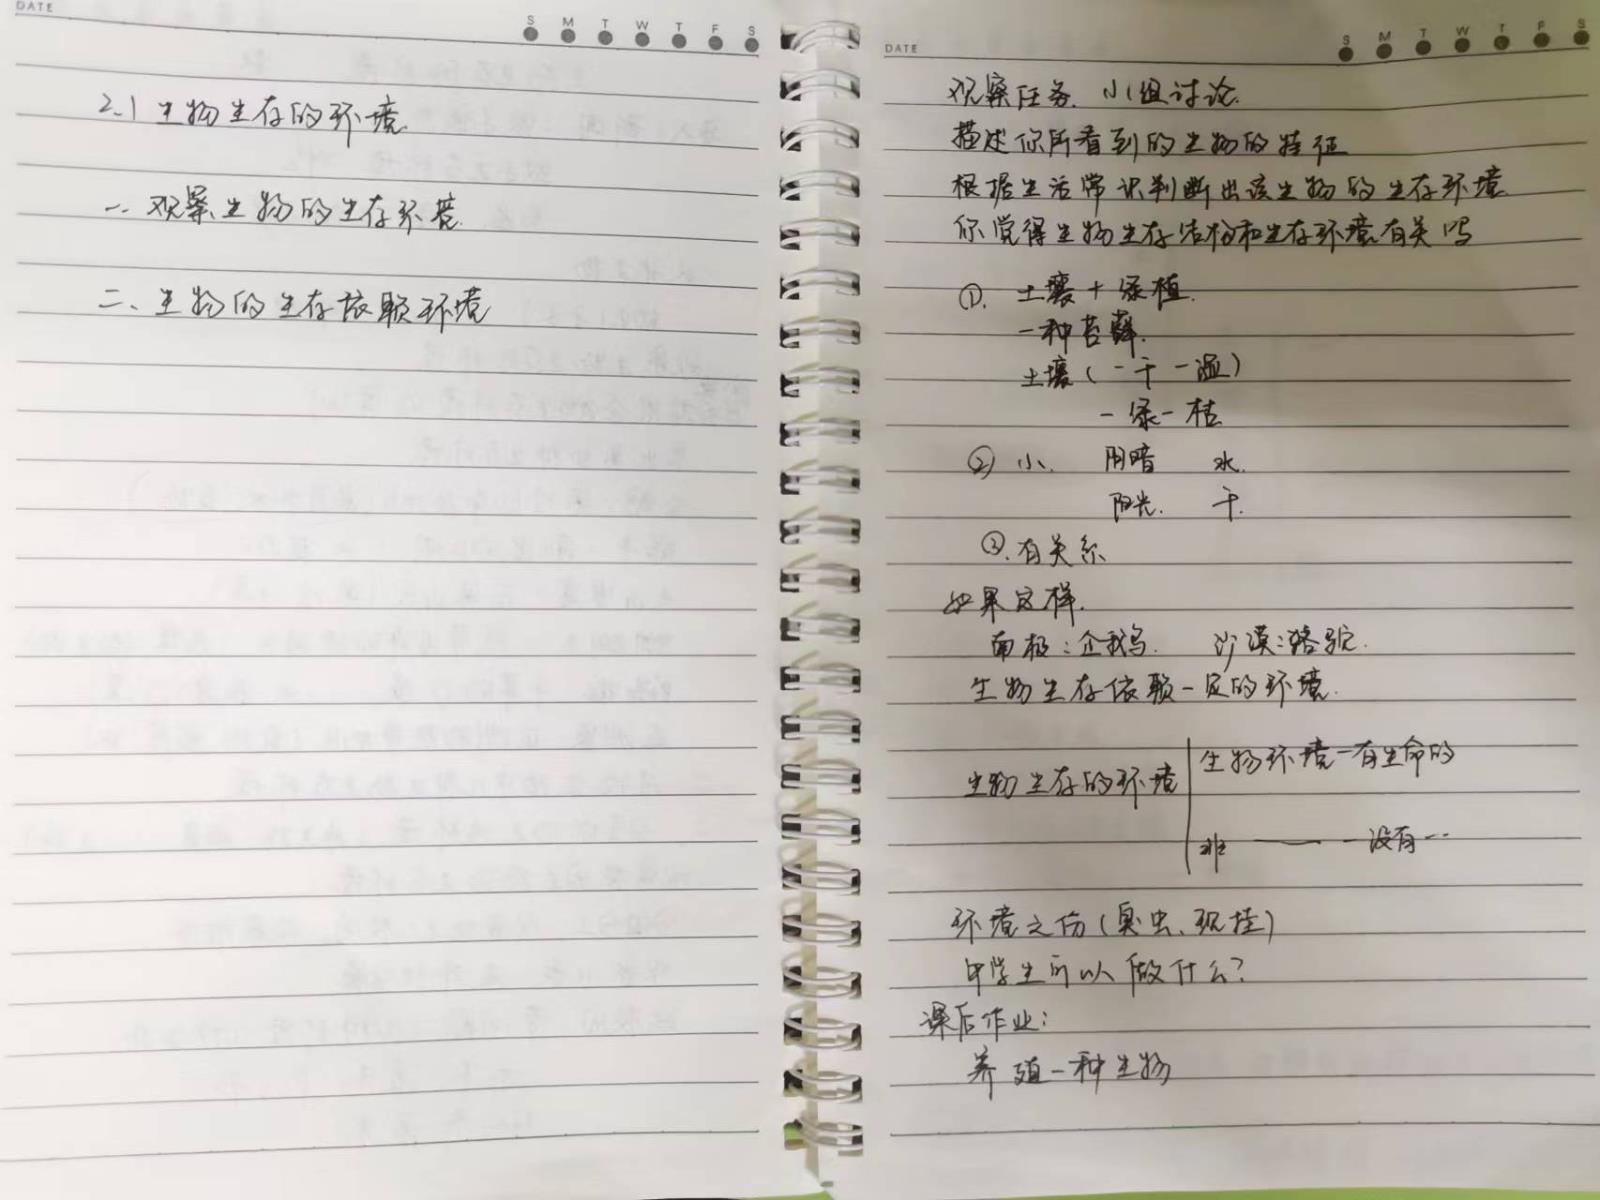 DATE
S M T W T F S
2.1 生物生存的环境
一. 观察生物的生存环境.
二、生物的生存依赖环境
DATE
S M T W T F S
观察任务. 小组讨论.
描述你所看到的生物的特征
根据生活常识判断出该生物的生存环境
你觉得生物生存结构和生存环境有关吗
①. 土壤+绿植.
一种苔藓.
土壤(一干一湿)
一绿一枯
② 小. 阴暗 水.
阳光. 干.
③.有关系
如果这样.
南极:企鹅. 沙漠:骆驼.
生物生存依赖一定的环境.
生物生存的环境
生物环境一有生命的
非 —— 一没有一
环境之伤(臭虫、
中学生可以做什么?
课后作业:
养殖一种生物